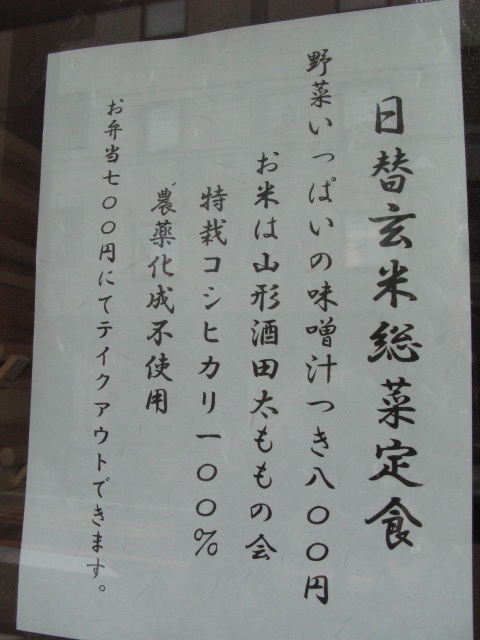 日替玄米総菜定食
野菜いっぱいの味噌汁つき八〇〇円
お米は山形酒田太ももの会
特栽コシヒカリ一〇〇%
農薬化成不使用
お弁当七〇〇円にてテイクアウトできます。